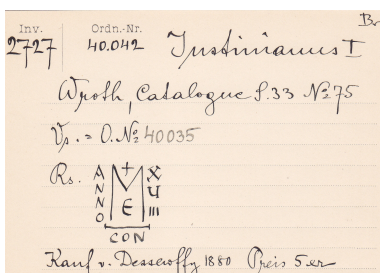 Br
Inv. Ordn.-Nr.
2727 40.042 Justinianus I
Wroth, Catalogue S.33 No 75
Vs. = O.No 40035
Rs. ANNO + M E X U III
CON
Kauf v. Dessewffy 1880 Preis 5 er